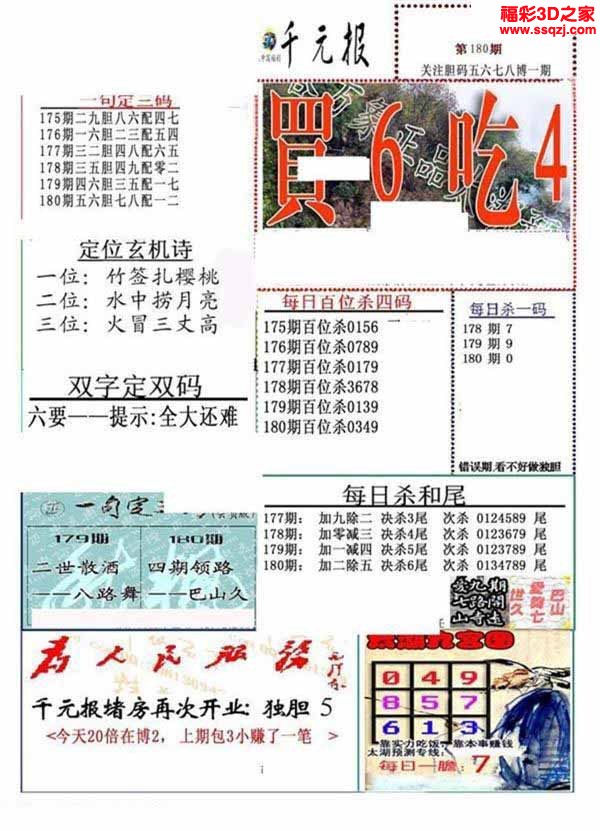 福彩3D之家
www.ssqzj.com
千元报
第180期
关注胆码五六七八博一期
一句定三码
175期二九胆八六配四七
176期一六胆二三配五四
177期三二胆四八配六五
178期三五胆四九配零二
179期四六胆三五配一七
180期五六胆七八配一二
買6吃4
定位玄机诗
一位：竹签扎樱桃
二位：水中捞月亮
三位：火冒三丈高
双字定双码
六要——提示:全大还难
每日百位杀四码
175期百位杀0156
176期百位杀0789
177期百位杀0179
178期百位杀3678
179期百位杀0139
180期百位杀0349
每日杀一码
178期7
179期9
180期0
错误期,看不好做独胆
每日杀和尾
177期： 加九除二 决杀3尾 次杀 0124589 尾
178期： 加零减三 决杀4尾 次杀 0123679 尾
179期： 加一减四 决杀5尾 次杀 0123789 尾
180期： 加二除五 决杀6尾 次杀 0134789 尾
一句定三
179期
二世散酒
——八路舞
180期
四期领路
——巴山久
巴山
世久
为人民服务
千元报堵房再次开业: 独胆 5
<今天20倍在博2，上期包3小赚了一笔 >
0 4 9
8 5 7
6 1 3
靠实力吃饭，靠本事赚钱
太湖预测专线:
每日一胆: 7